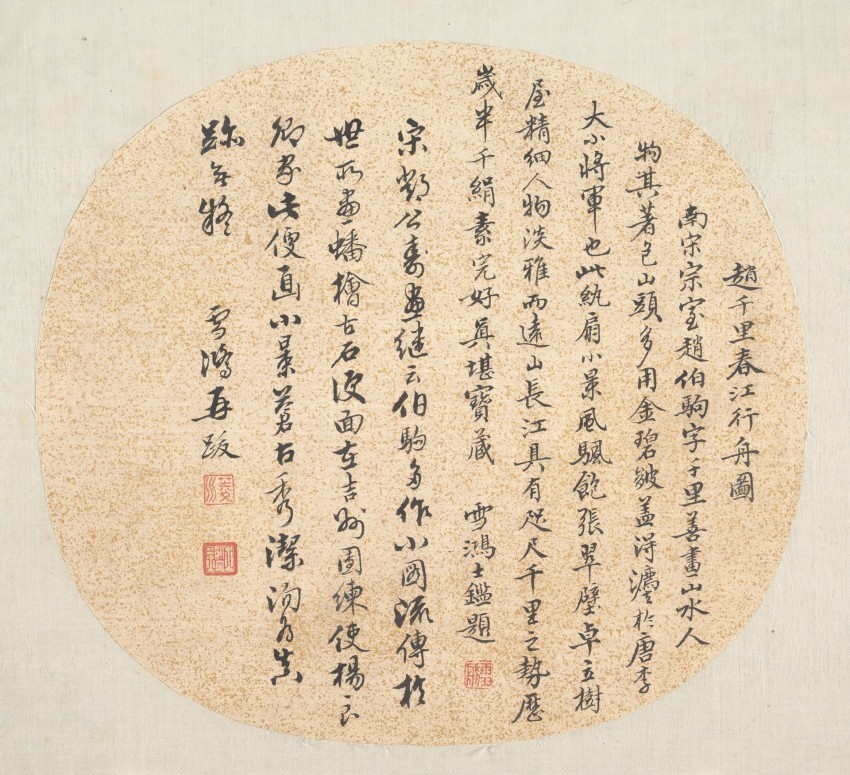 趙千里春江行舟圖
南宋宗室趙伯駒字千里善畫山水人
物其著色山頭多用金碧皴蓋得灋於唐李
大小將軍也此紈扇小景風颿飽張翠壁卓立樹
屋精細人物淡雅而遠山長江具有咫尺千里之勢歷
歲半千絹素完好真堪寶藏 雪鴻士鑑題
宋鄧公壽畫繼云伯駒多作小圖流傳於
世所畫蟠檜古石便面在吉州團練使楊
卿家此便面小景蒼古秀潔洵為真
跡無疑 雪鴻再跋